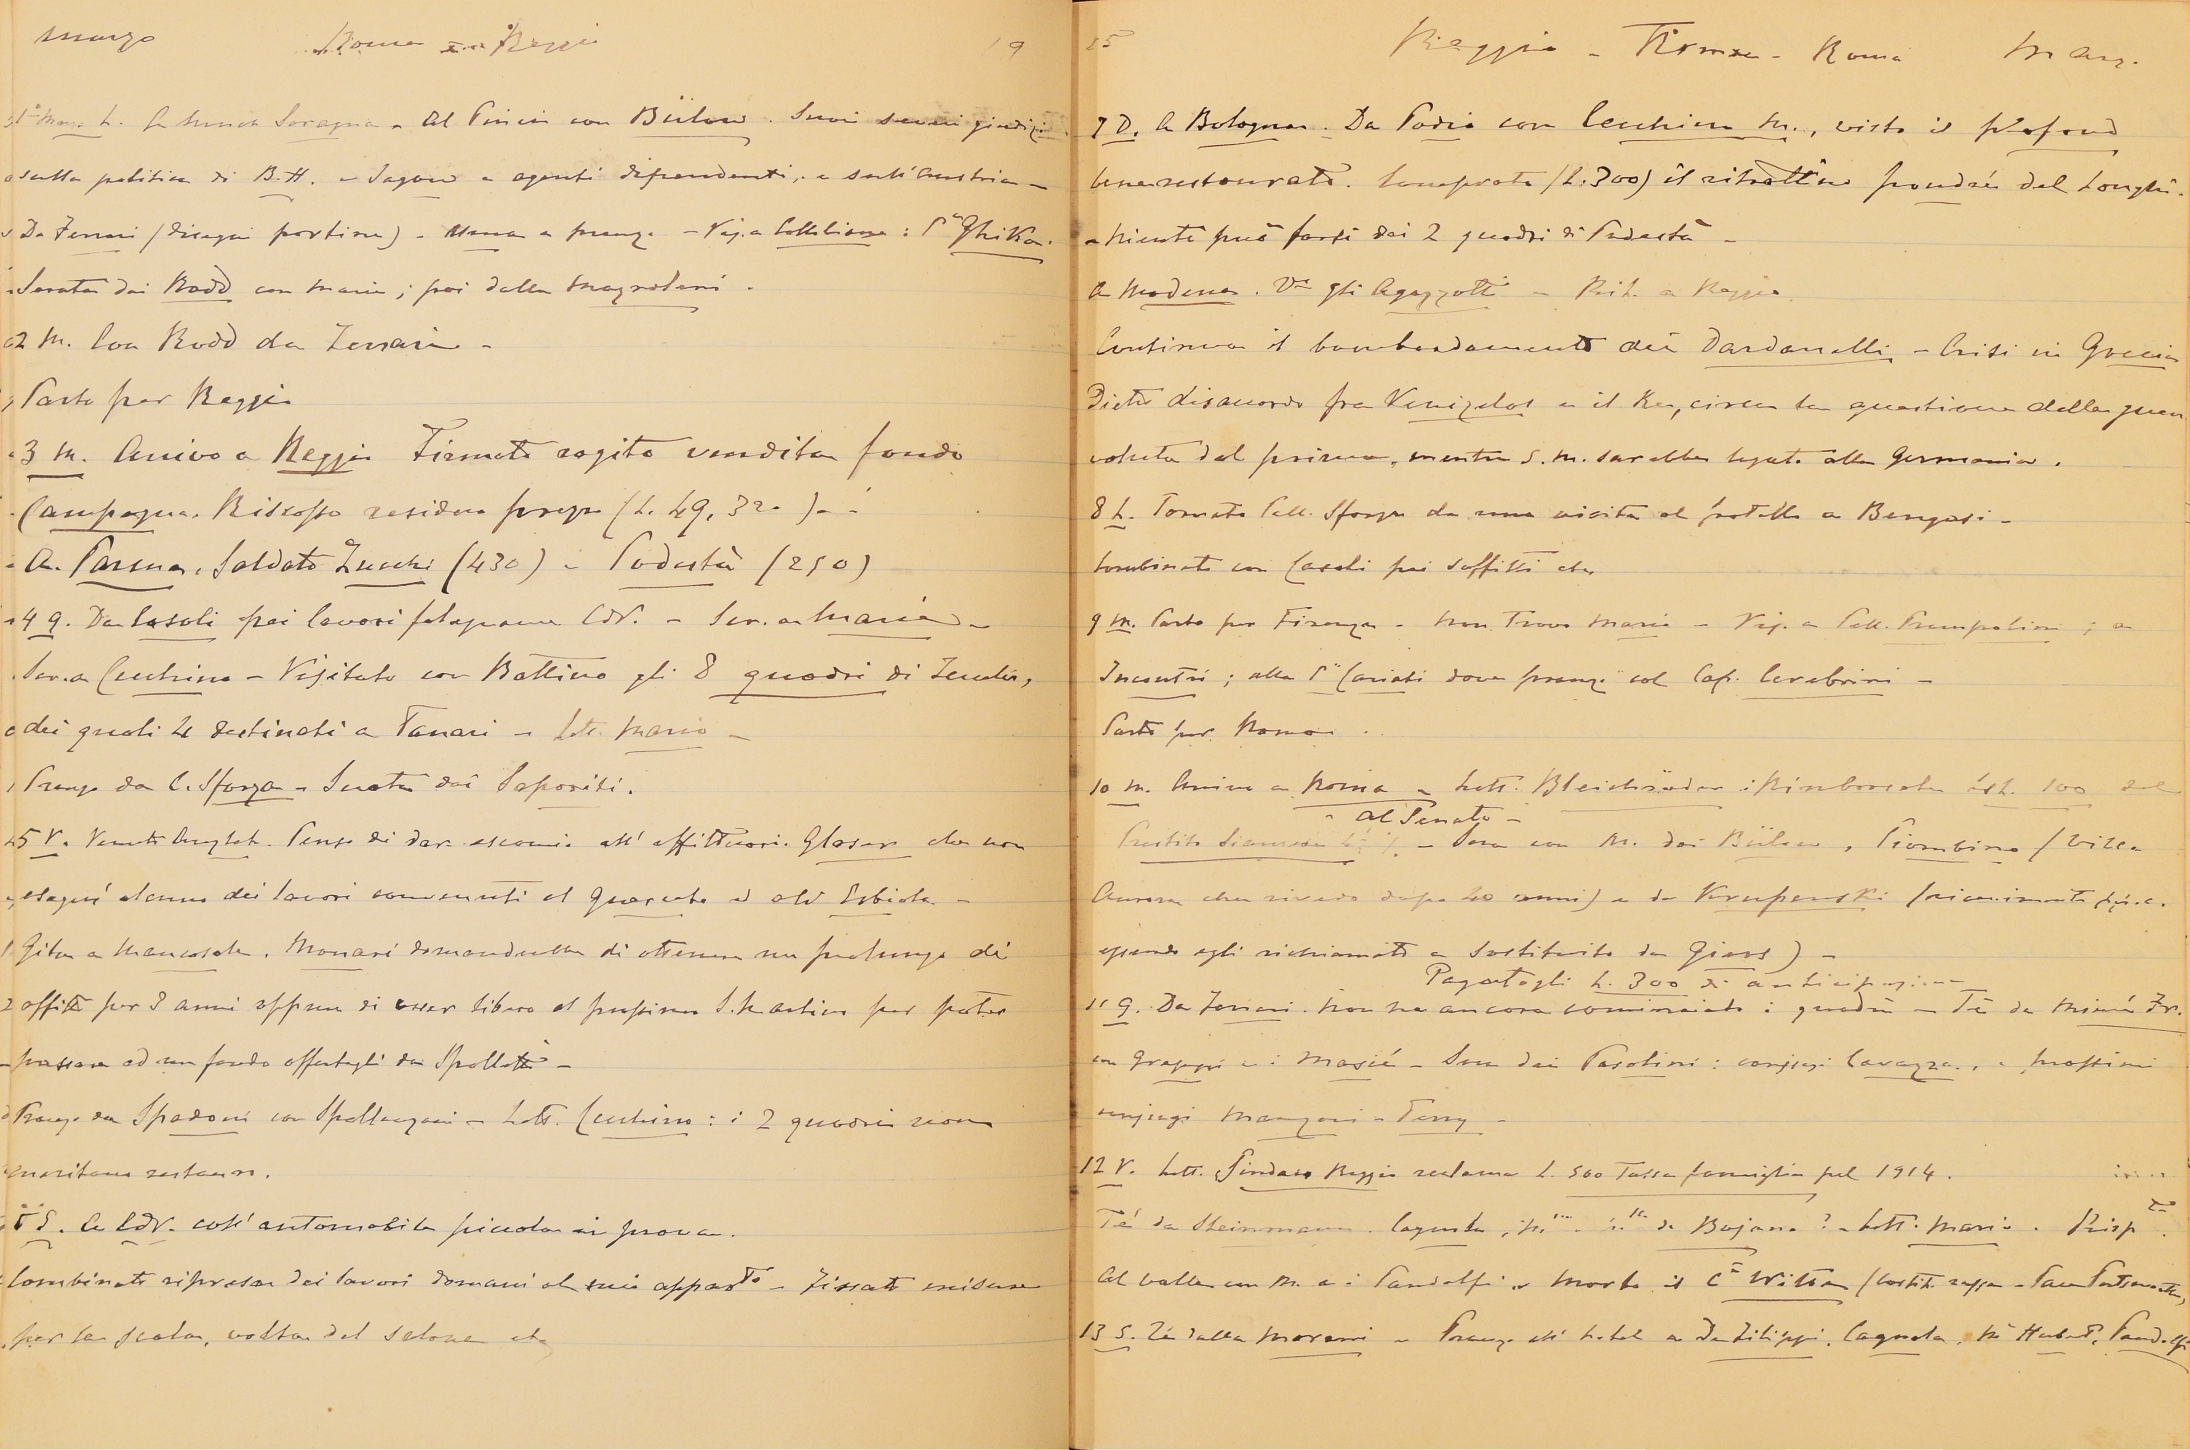 Marzo Roma Reggio 19
1° Marzo L. Soragna - Al Pincio con Bülow. Suoi severi giudizi
sulla politica di B.H. e Jagow e agenti dipendenti, e sull'Austria -
Da Ferrari (disegni portine) - a pranzo - Vis. a : P.ssa Ghika.
Serata dai Rodd con Maria; poi dalla Magnoloni.
2 M. Con Rodd da Ferrari -
Parto per Reggio
3 M. Arrivo a Reggio Firmato rogito vendita fondo
Campagna. Riscosso residuo prezzo (L. 49,320) -
A Parma. Saldato Zucchi (430) - Podestà (250)
4 G. Da Casoli pei lavori falegname CdV. - Scr. a Maria -
Scr. a Cecchino - Visitato con Battino gli 8 quadri di Zucchi,
dei quali 4 destinati a Tanari - Lett. Mario -
Pranzo da C. Sforza - Serata dai Saporiti.
5 V. Penso di dar escomio all'affittuario Glaser che non
eseguì alcuno dei lavori convenuti al Querceto ed alla -
Gita a Mancasale. Monari domanderebbe di ottenere un prolungo di
affitto per 3 anni oppure di esser libero al prossimo S. Martino per poter
passare ad un fondo offertogli da Spallotti -
Pranzo da Spadoni con Spallanzani - Lett. Cecchino: i 2 quadri non
meritano restauro.
6 S. A CdV. coll'automobile piccola in prova.
Combinato ripresa dei lavori domani al mio appartto - Fissato misure
per la scala, volta del salone etc
15 Reggio - Firenze - Roma Marz.
7 D. A Bologna. Da Podio con Cecchino M., visto il plafond
Comprato (L. 300) il ritrattino poudré del Longhi.
Niente può farsi dai 2 quadri di Podestà -
A Modena. Vo gli Agazzotti - Rit. a Reggio.
Continua il bombardamento dei Dardanelli - Crisi in Grecia
Dietro disaccordo fra Venizelos e il Re, circa la questione della guerra
voluta dal primo, mentre S.M. sarebbe legato alla Germania.
8 L. Tornato Call. Sforza da una visita al fratello a Bengasi -
Combinato con Casoli pei soffitti etc
9 M. Parto per Firenze - Non trovo Mario - Vis. a Call. Prampolini; a
Incontri; alla P.ssa Cariati dove pranzo col Cap. Cerebrini -
Parto per Roma.
10 M. Arrivo a Roma - Lett. Bleichröder: Rimborsate Lst. 100 del
- al Senato -
Prestito Siamese - Sera con M. dai Bülow, Piombino (Villa
Aurora che rivedo dopo 40 anni) e da Krupenski (ricevimento p.p.c.
essendo egli richiamato e sostituito da Giers) -
Pagatogli L. 300 di anticipazione
11 G. Da Ferrari. Non ha ancora cominciato i quadri - Tè da Mimì Fr.
con Grazioli e i Magié - Sera dai Pasolini: coniugi Cavazza, e prossimi
coniugi Manzoni - Terry -
12 V. Lett. Sindaco Reggio reclama L. 500 Tassa famiglia pel 1914.
Tè da Steinmann. Cagnola, M.me - M.lle de Bojano? - Lett. Mario. Risp.to
Al Valle con M. e i Pandolfi. Morto il C.te Witte (costit. russa - Pace Portsmouth,
13 S. Tè dalla Morani - Pranzo all'hotel a De Filippi, Cagnola, M. Hubert, Pandolfi